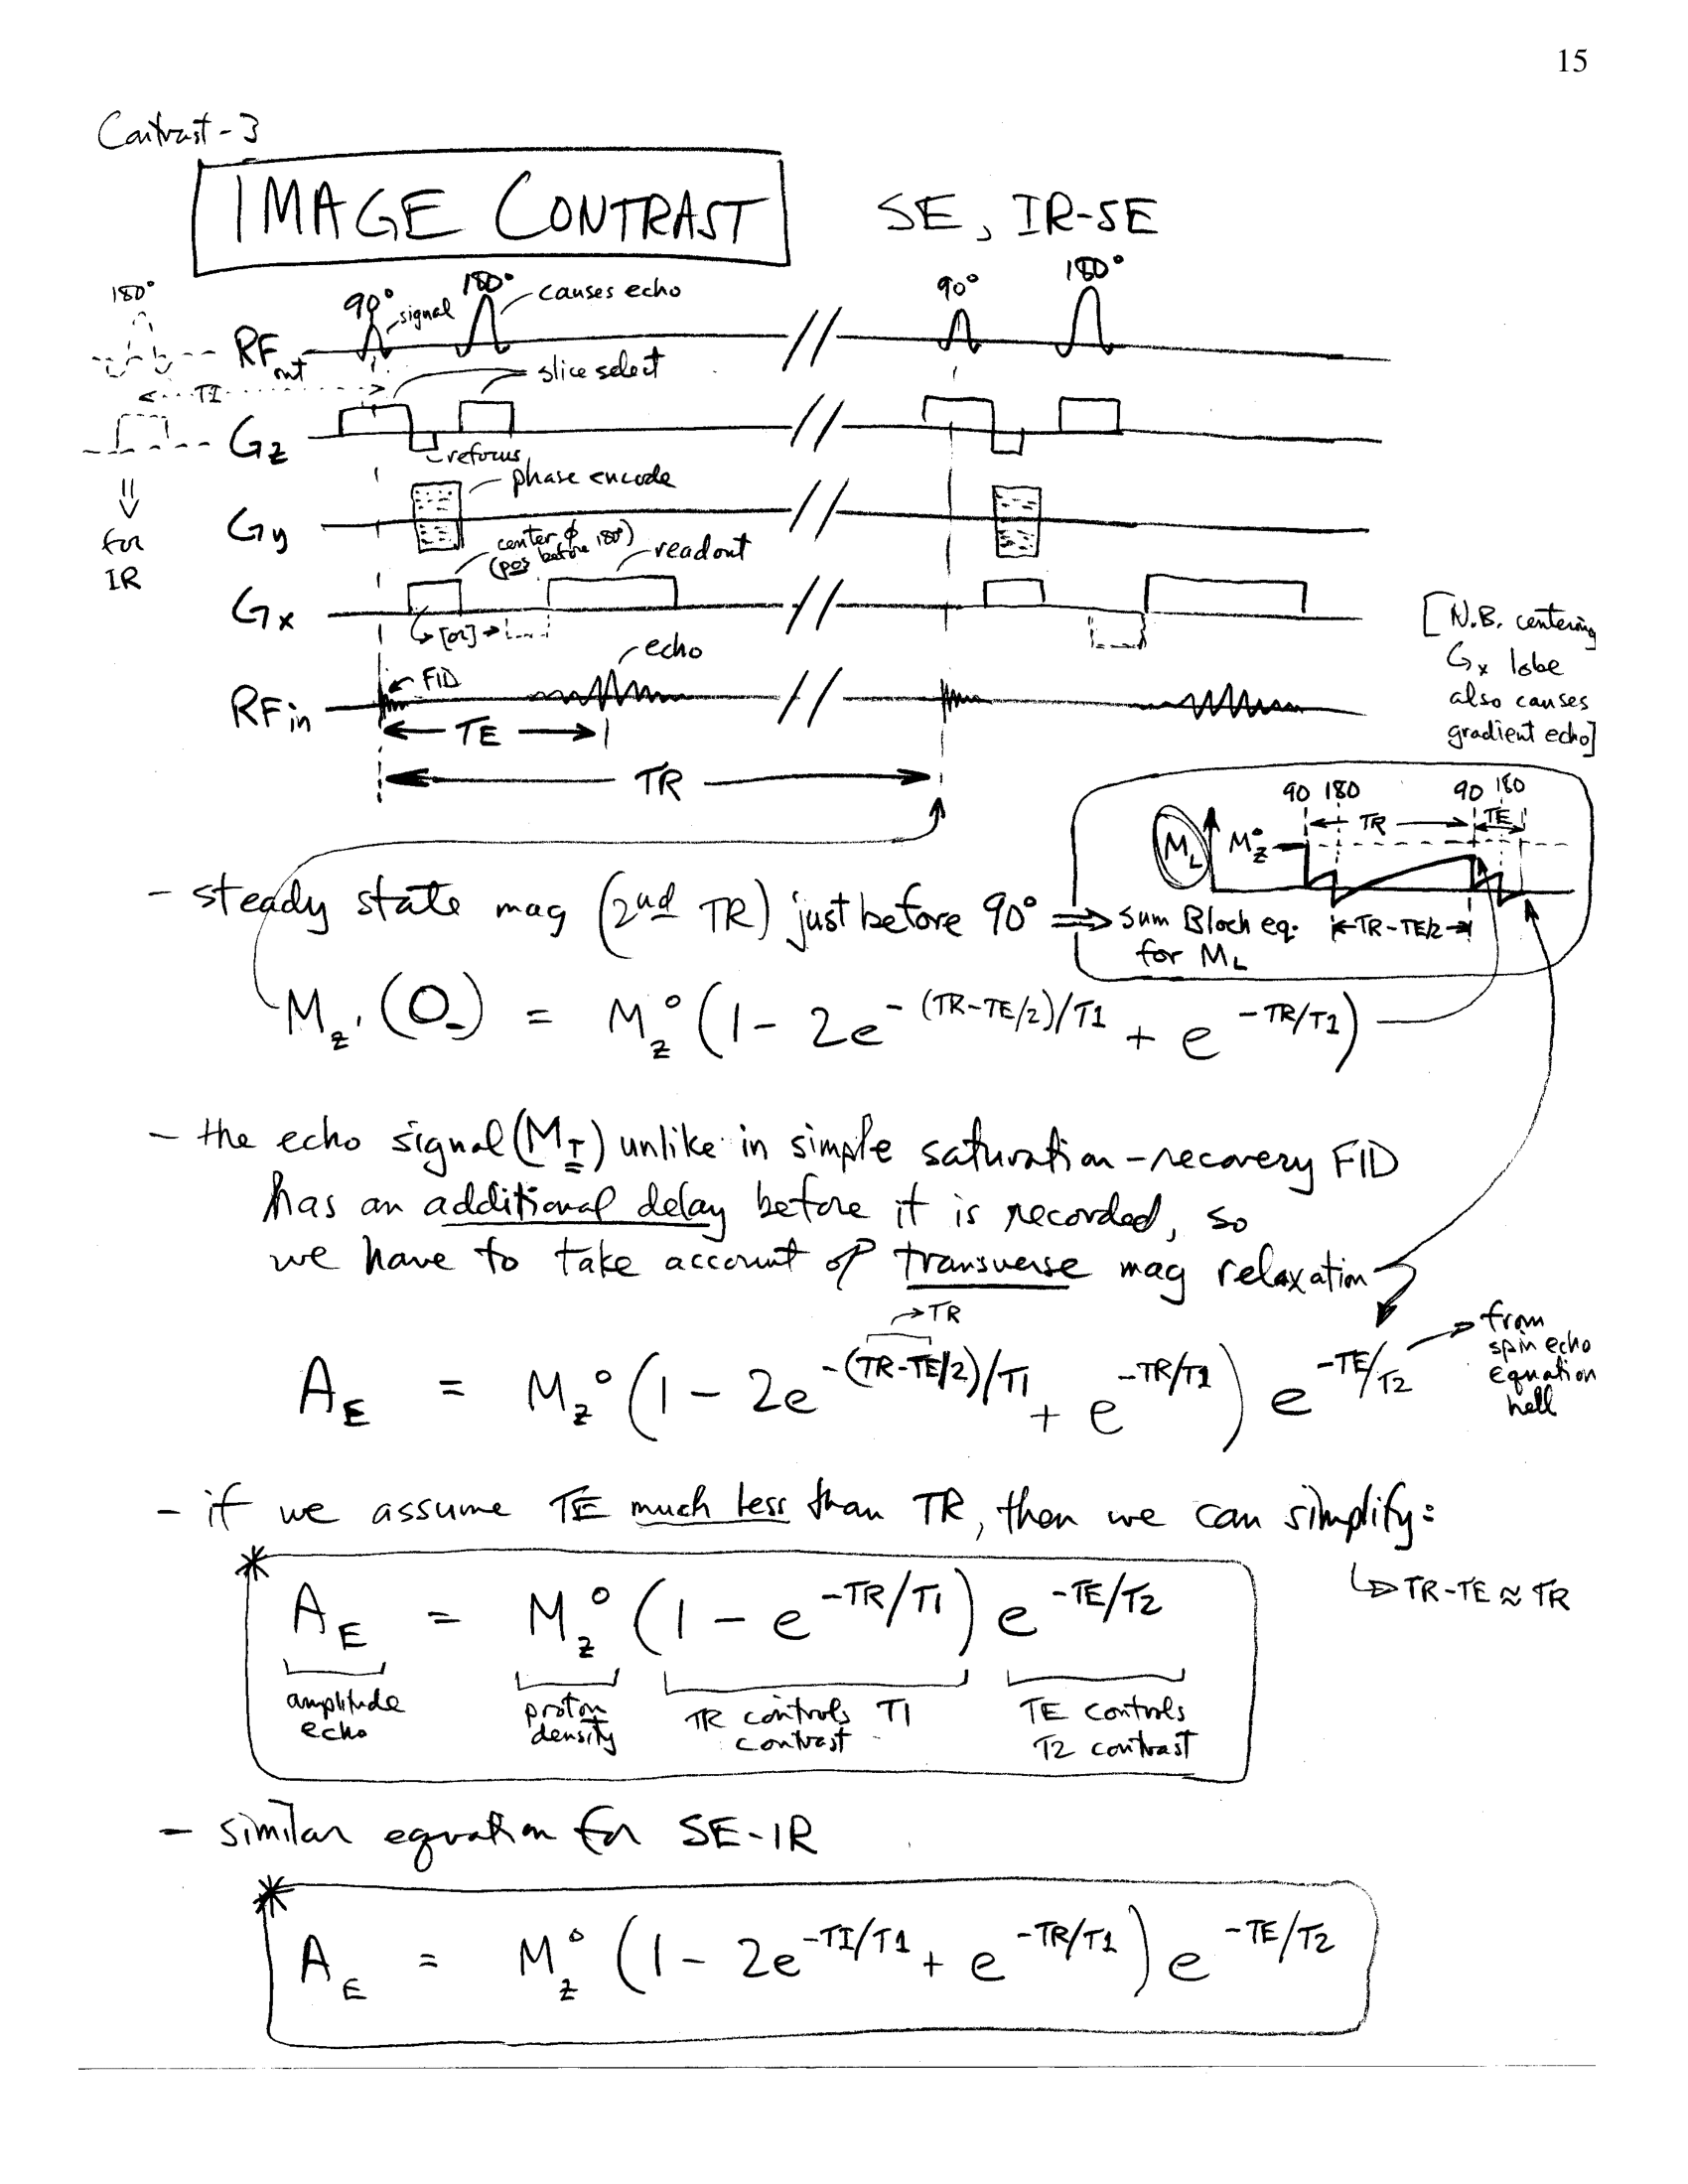 15
Contrast-3
IMAGE CONTRAST SE, IR-SE
180° 90° signal 180° causes echo 90° 180°
RF out
TI slice select
Gz
refocus
phase encode
Gy
⇓
for
IR
center ϕ
(pos before 180°) readout
Gx
[or]
[N.B. centering
Gx lobe
also causes
gradient echo]
echo
FID
RF in
TE
TR
90 180 90 180
TR TE
M_L M_z°
- steady state mag (2nd TR) just before 90° ⇒ sum Bloch eq. TR-TE/2
for M_L
M_z'(0_-) = M_z° (1 - 2e^{-(TR-TE/2)/T1} + e^{-TR/T1})
- the echo signal (M_T) unlike in simple saturation-recovery FID
has an additional delay before it is recorded, so
we have to take account of transverse mag relaxation
→TR
A_E = M_z° (1 - 2e^{-(TR-TE/2)/T1} + e^{-TR/T1}) e^{-TE/T2}
from
spin echo
equation
hell
- if we assume TE much less than TR, then we can simplify:
↳ TR-TE ≈ TR
* A_E = M_z° (1 - e^{-TR/T1}) e^{-TE/T2}
amplitude
echo
proton
density
TR controls T1
contrast
TE controls
T2 contrast
- similar equation for SE-IR
* A_E = M_z° (1 - 2e^{-TI/T1} + e^{-TR/T1}) e^{-TE/T2}